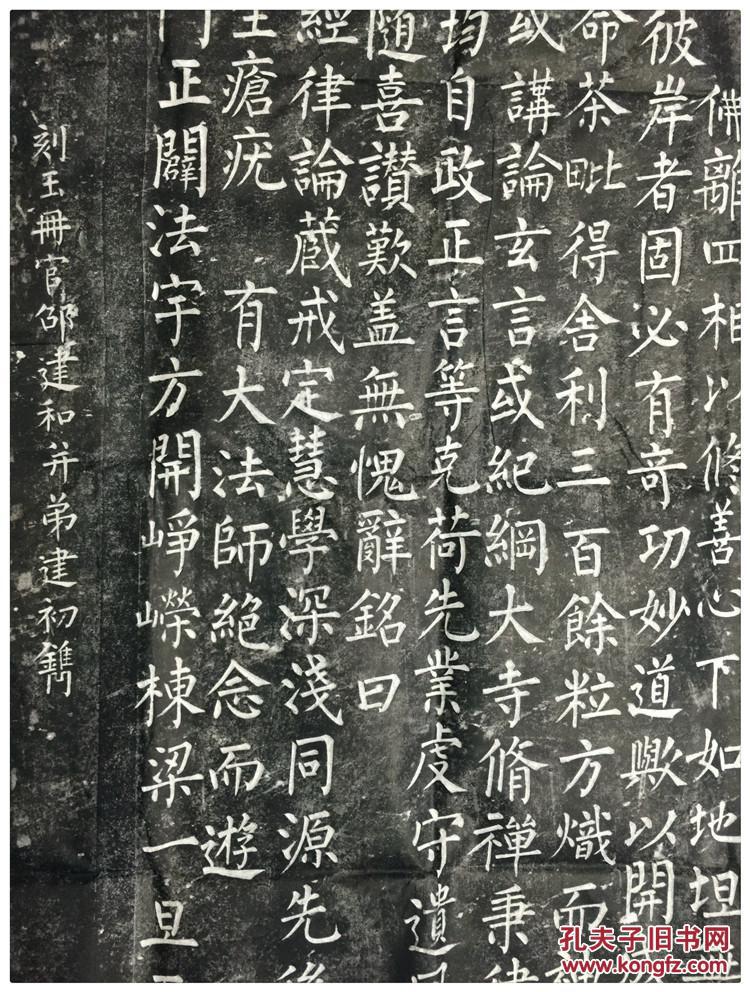 佛離四相以修善心下如地坦無
彼岸者固必有奇功妙道歟以開成
命荼毗得舍利三百餘粒方熾而神
或講論玄言或紀綱大寺脩禪秉律
均自政正言等克荷先業虔守遺
隨喜讃歎盖無愧辭銘曰
經律論蔵戒定慧學深淺同源先後
生瘡疣 有大法師絕念而遊
門正闢法宇方開崢嶸棟梁一旦
刻玉冊官邵建和并弟建初鐫
孔夫子旧书网
www.kongfz.com